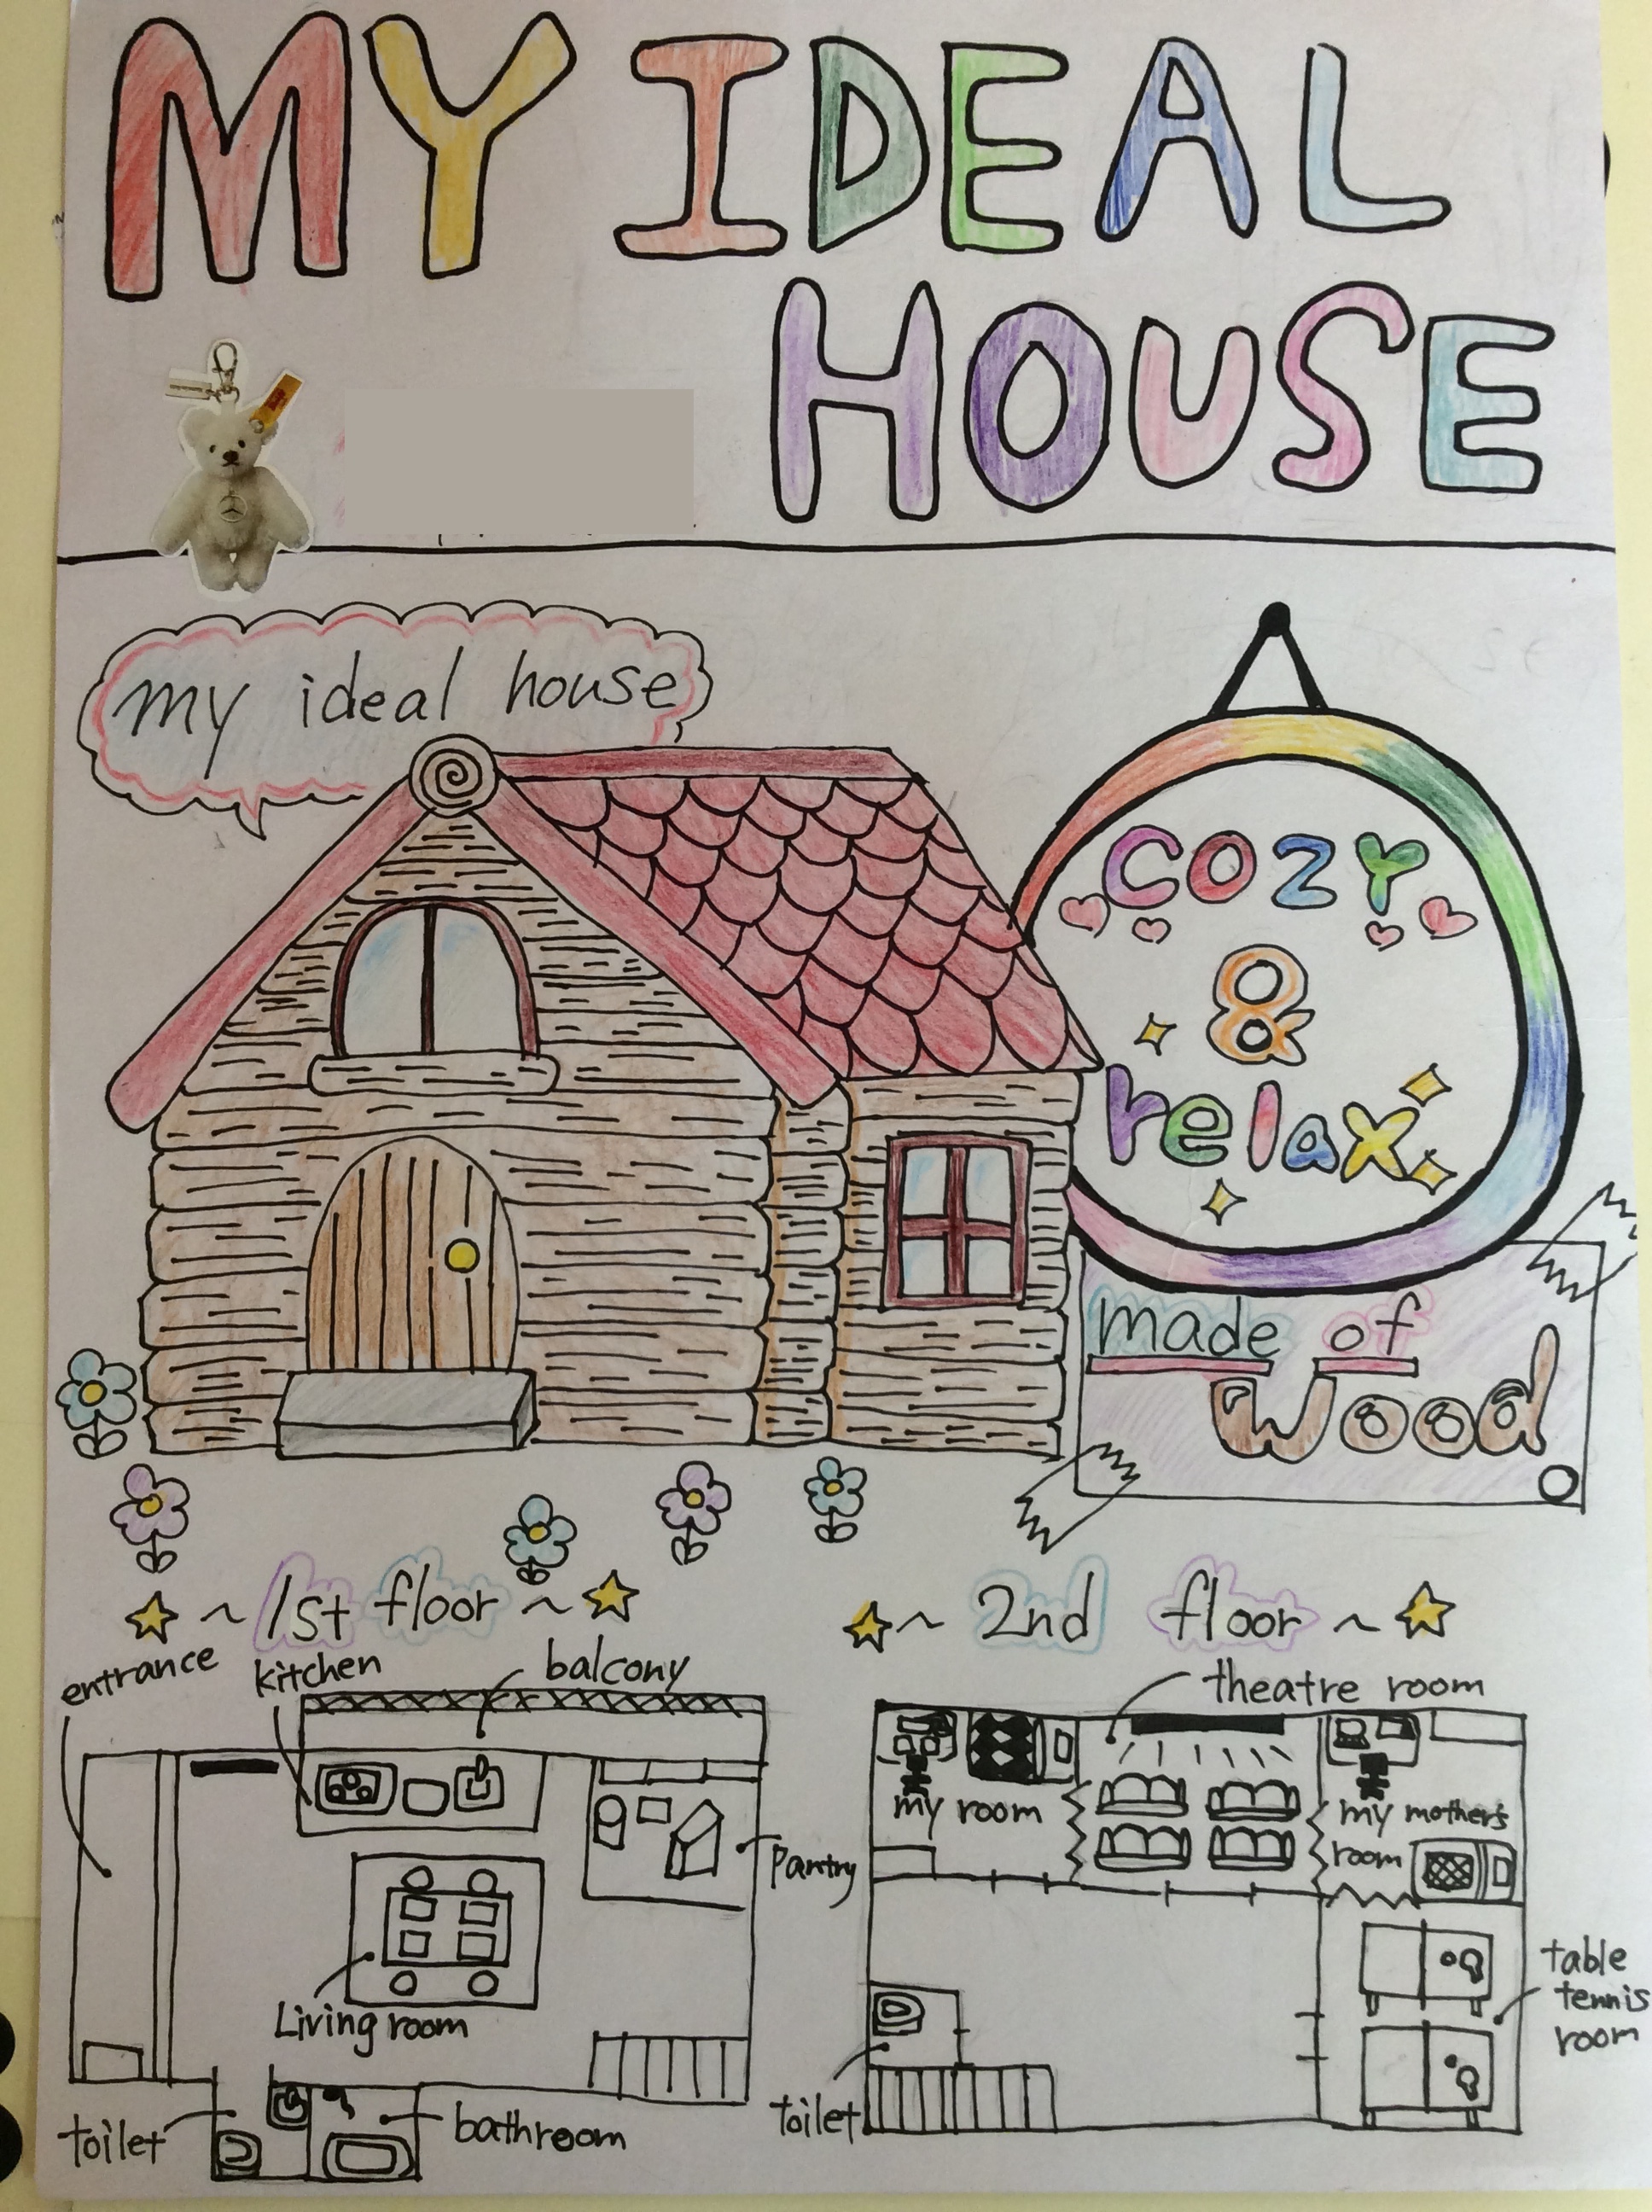 MY IDEAL
HOUSE
my ideal house
COZY
&
relax
made of
Wood
~ 1st floor ~
~ 2nd floor ~
entrance
kitchen
balcony
Pantry
Living room
toilet
bathroom
theatre room
my room
my mother's
room
table
tennis
room
toilet